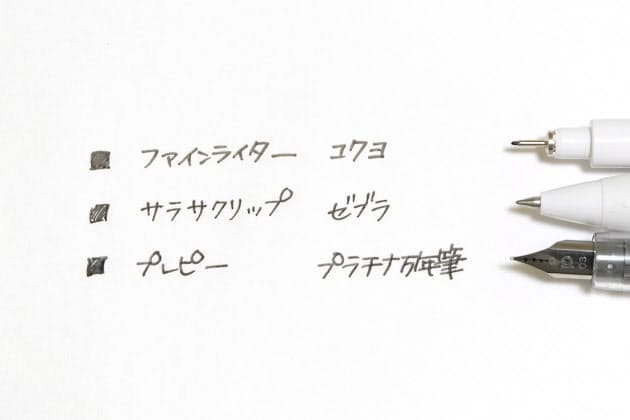 ファインライター コクヨ
サラサクリップ ゼブラ
プレピー プラチナ万年筆
03